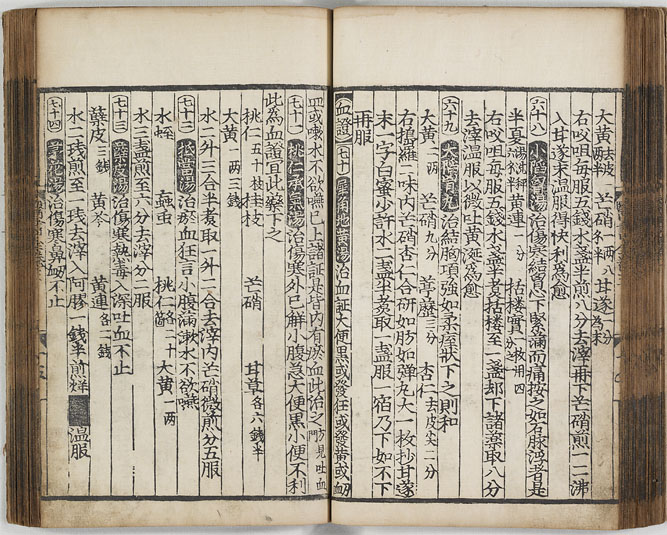 大黄 去皮两半 芒硝 一两各半 甘遂
右㕮咀每服五錢水盞半煎八分去滓再下芒硝煎一二沸
入甘遂末温服得快利為愈
六十八 小陷胷湯 治傷寒結胷心下緊滿而痛按之如石脉浮者是
半夏 黄連 一分 栝楼實
右㕮咀每服五錢水盞半煮栝楼至一盞却下諸藥取八分
去滓温服以微吐黄涎為愈
六十九 大陷胷丸 治結胷項強如柔痓狀下之則和
大黄 一两 芒硝 九分 葶藶 三分 杏仁 去皮尖二分
右搗羅二味内芒硝杏仁合研如肪如弾丸大一枚抄甘遂
末一字白蜜少許水一盞半煮取一盞服一宿乃下如不下
再服
血證 七十 犀角地黄湯 治血証大便黒或發狂或發黄或衂
血或嗽水不欲嚥已上諸証是皆内有瘀血此治之 方見吐血門
七十一 桃仁承氣湯 治傷寒外已解小腹急大便黒小便不利
此為血證宜此藥下之
桃仁 五十枚 桂枝 芒硝 甘草 各六錢半
大黄 两三錢
水二升三合半煮取一升二合去滓内芒硝微煎分五服
七十二 抵當湯 治瘀血狂言小腹滿漱水不欲嚥
水蛭 䖟虫 桃仁 各二十箇 大黄 一两
水三盞煎至六分去滓分二服
七十三 治傷寒熱毒入深吐血不止
蘗皮 三錢 黄芩 黄連 各二錢
水二盞煎至一盞去滓入阿膠一錢半煎烊 温服
七十四 茅花湯 治傷寒鼻衂不止